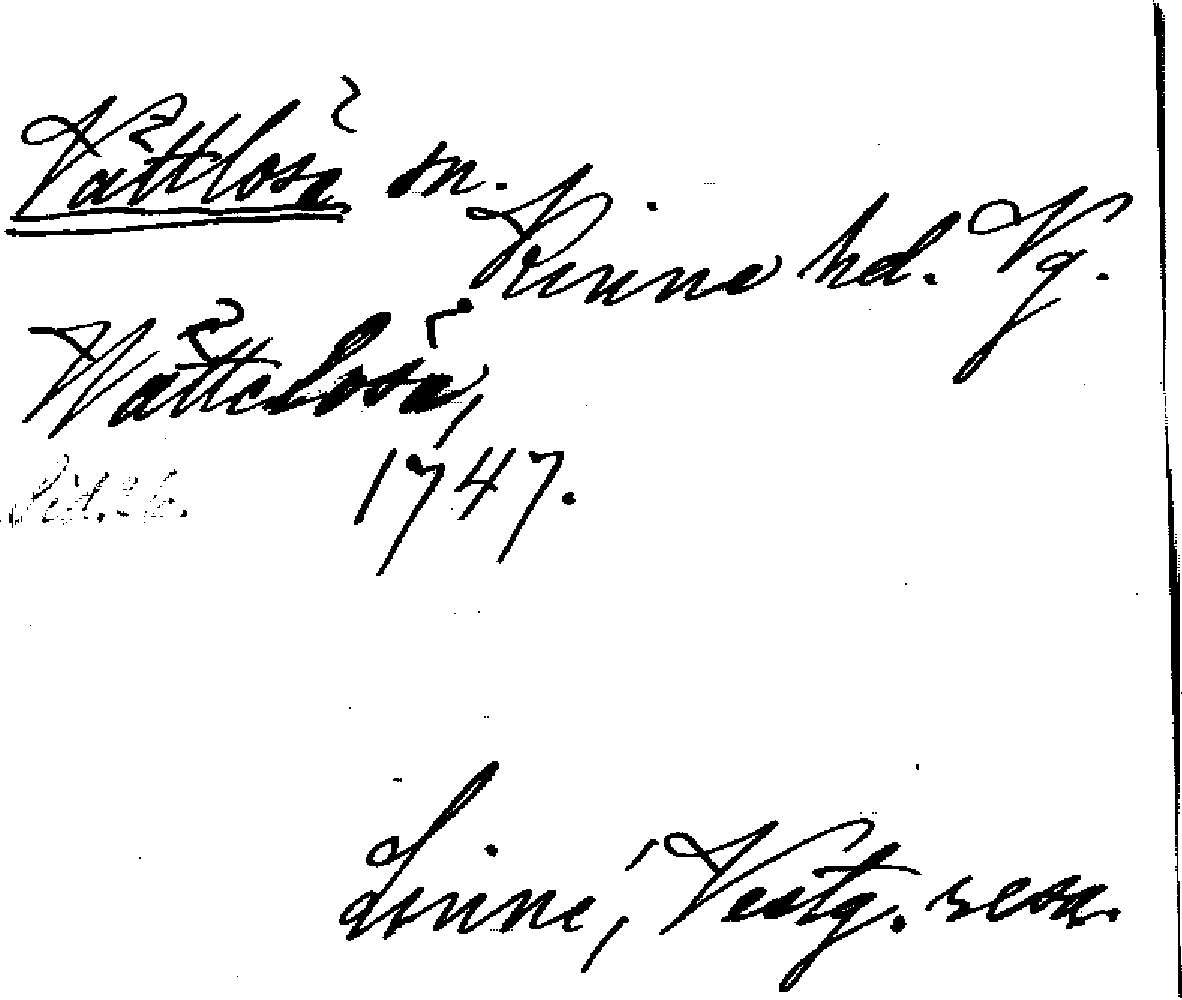 Vättlösa sn.
Kinne hd. Vg.
Wättelösa,
1747.
Linné, Vestg. resa.